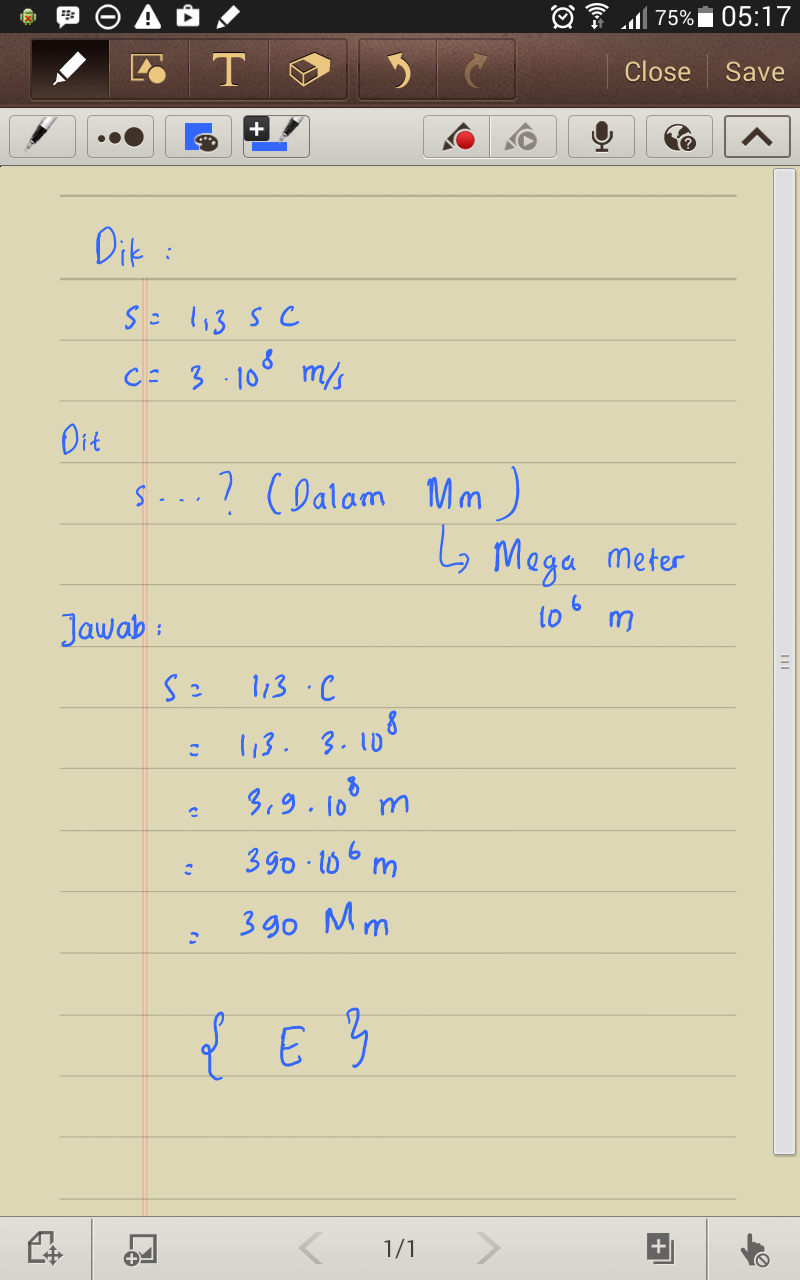 75% 05:17
T Close Save
Dik :
s = 1,3 s c
c = 3 . 10⁸ m/s
Dit
s ... ? (Dalam Mm)
↳ Mega meter
10⁶ m
Jawab :
s = 1,3 . c
= 1,3 . 3 . 10⁸
= 3,9 . 10⁸ m
= 390 . 10⁶ m
= 390 Mm
{ E }
1/1